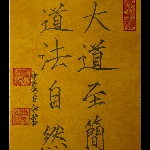 大道至簡
道法自然